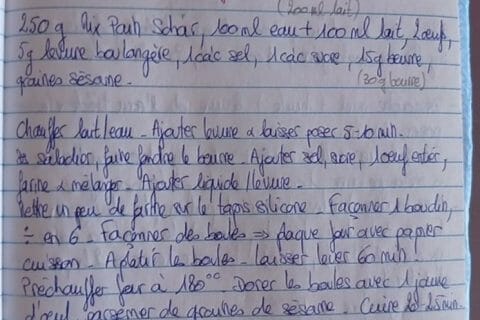 (200 ml lait)
250 g Mix Pain Schär, 100 ml eau + 100 ml lait, 2 œufs,
5g levure boulangère, 1 càc sel, 1 càc sucre, 15g beurre,
graines sésame. (30 g beurre)
Chauffer lait/eau - Ajouter levure & laisser poser 5-10 min.
saladier, faire fondre le beurre - Ajouter sel, sucre, 1 œuf entier,
farine & mélanger - Ajouter liquide/levure -
Mettre un peu de farine sur le tapis silicone - Façonner 1 boudin,
÷ en 6 - Façonner des boules => plaque four avec papier
cuisson - Aplatir les boules - laisser lever 60 min.
Préchauffer four à 180°C - Dorer les boules avec 1 jaune
d'œuf, parsemer de graines de sésame. Cuire 25min.